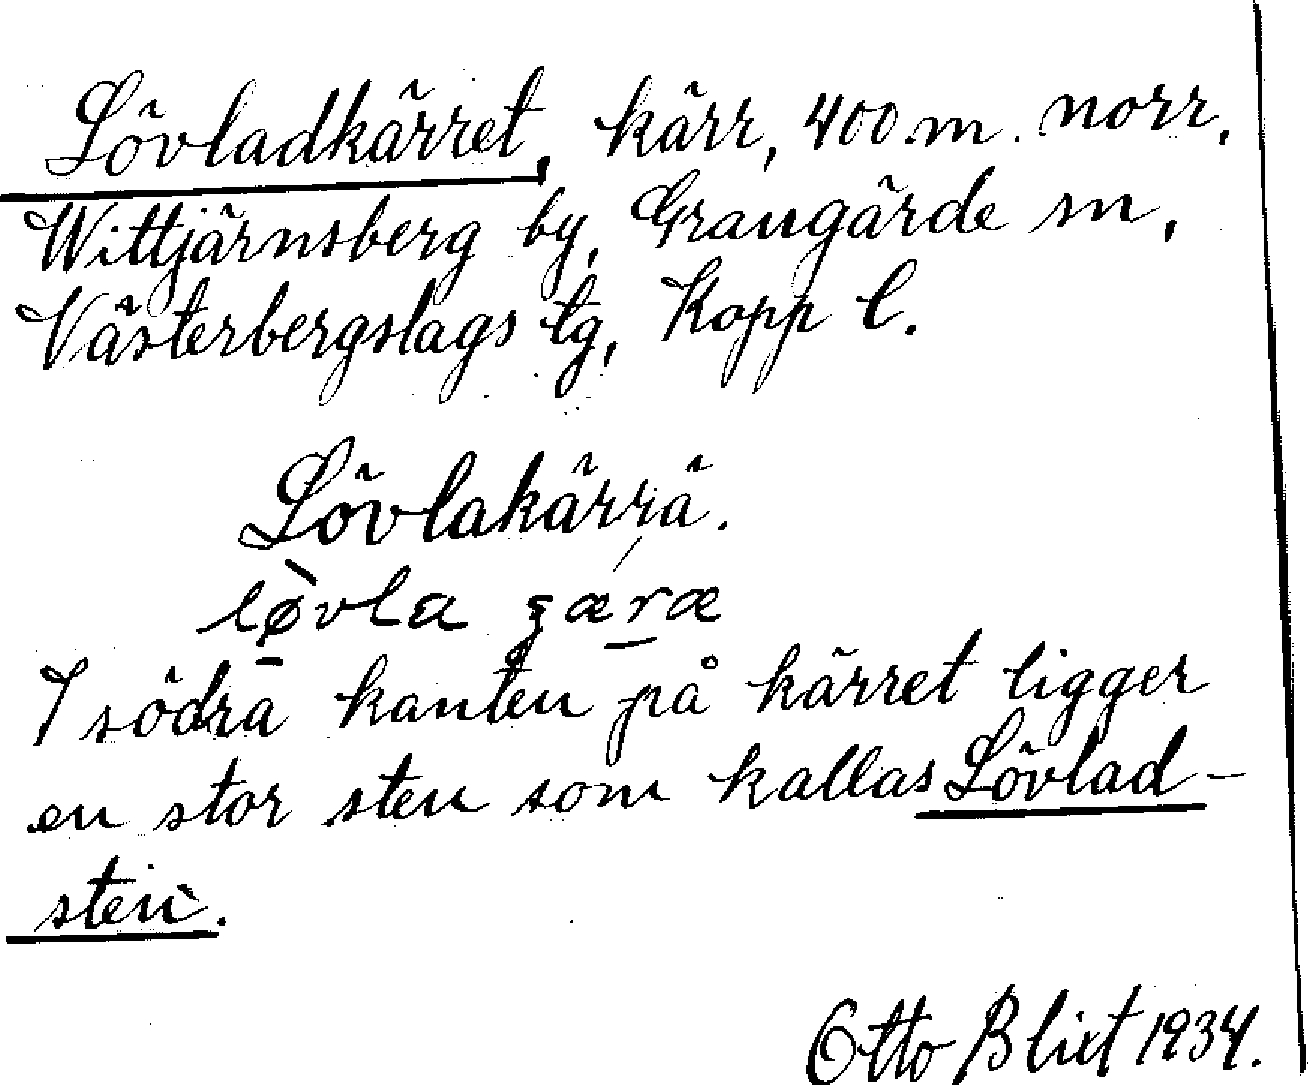 Lövladkärret, kärr, 400 m. norr,
Wittjärnsberg by, Grangärde sn,
Västerbergslags tg, Kopp l.
Lövlakärrä.
lø̀vla
I södra kanten på kärret ligger
en stor sten som kallas Lövlad-
sten.
Otto Blixt 1934.